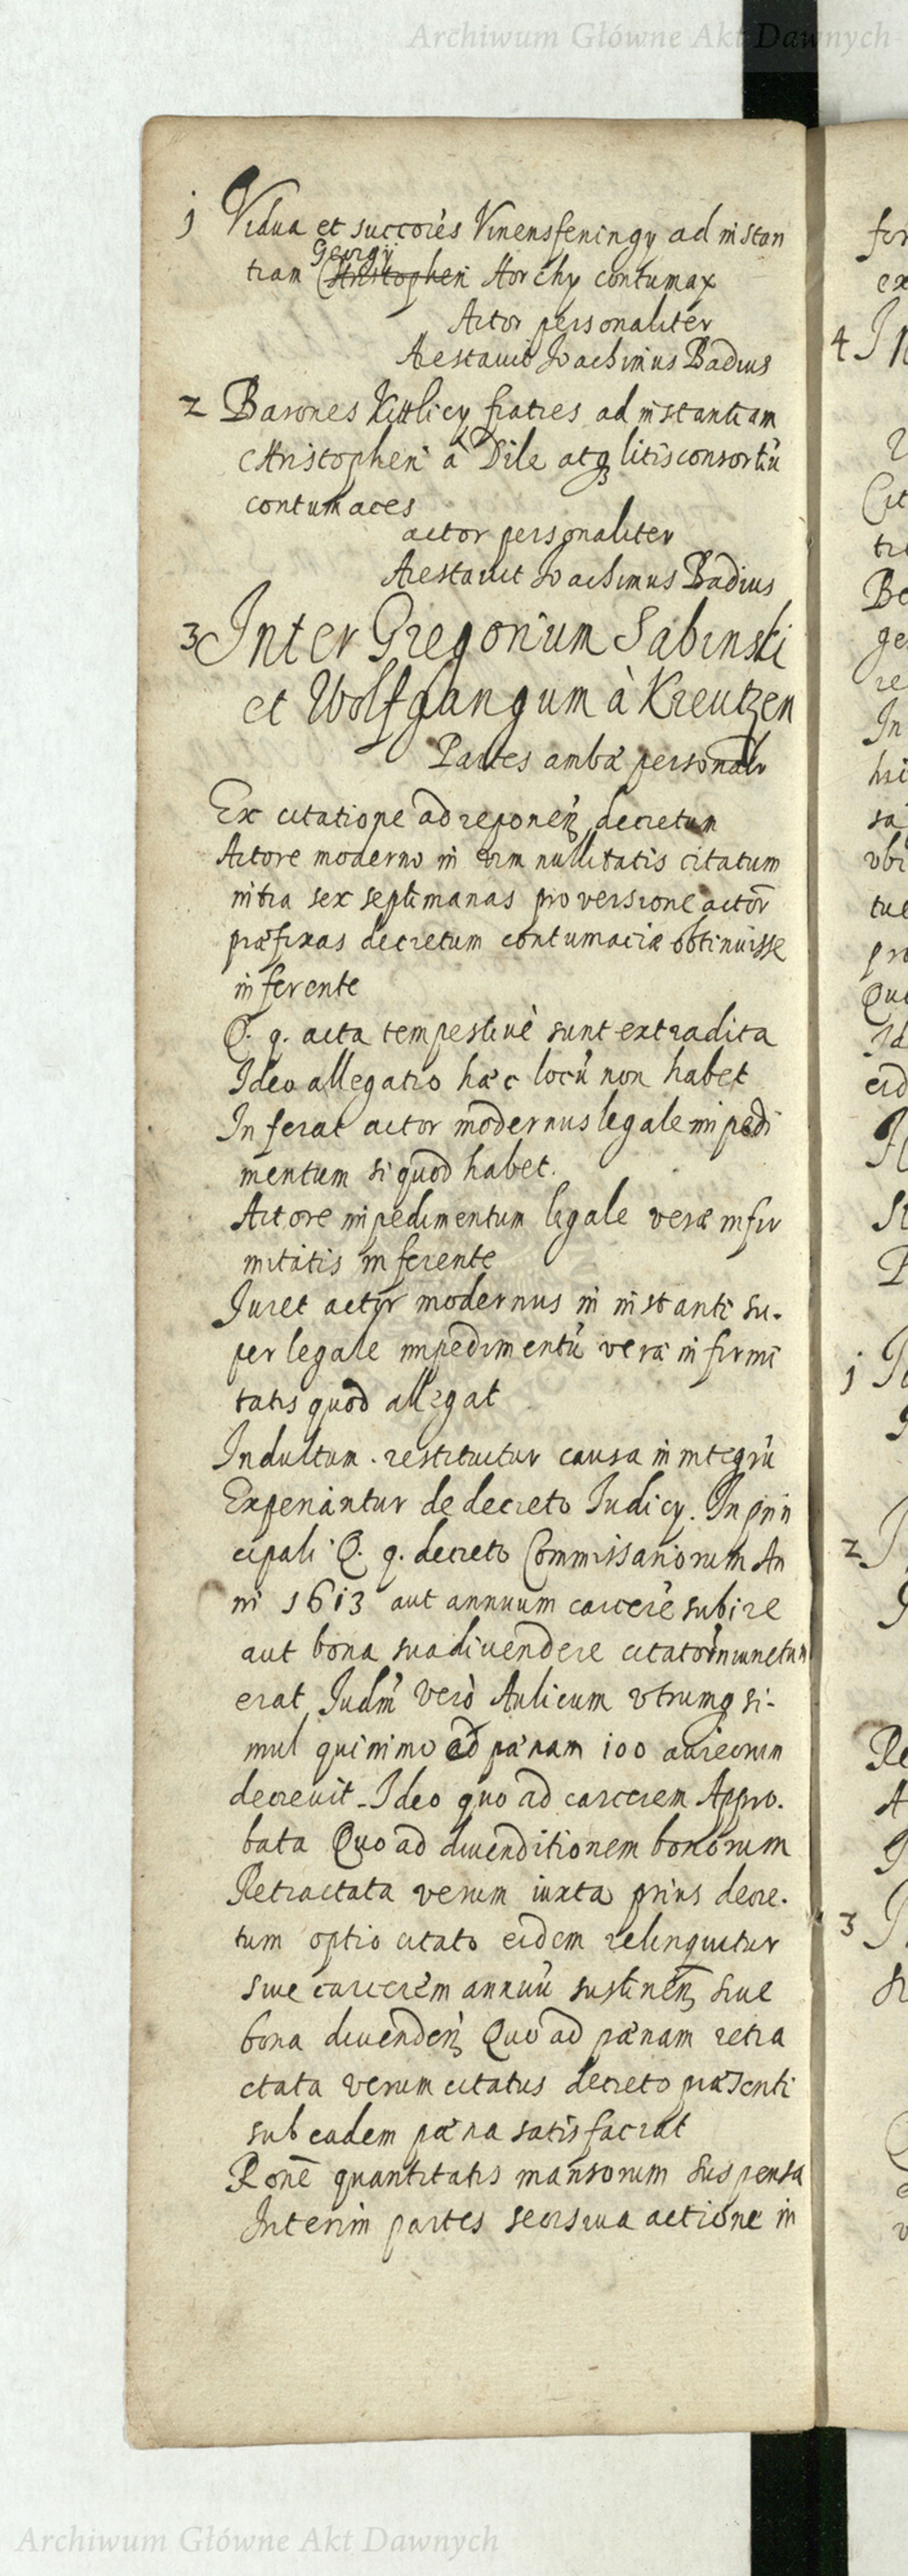 Archiwum Główne Akt Dawnych
1 Vidua et succores Vinensfeningy ad instan
Georgij
tiam Christopheri Horchy contumax
Actor personaliter
Arestavit Joachimus Badius
2 Barones Kittlicy fratres ad instantiam
Christopheri à Dile atq litis consortiũ
contumaces
actor personaliter
Arestavit Joachimus Badius
3 Inter Gregorium Sabinski
et Wolfgangum à Kreutzen
Partes ambæ personalr
Ex citatione ad reponen decretum
Actore moderno in vim nullitatis citatum
intra sex septimanas pro versione actor̃
præfixas decretum contumaciæ obtinuisse
inferente
Q. q. acta tempestivè sunt extradita
Ideo allegatio hæc locũ non habet
Inferat actor modernus legale impedi
mentum si quod habet.
Actore impedimentum legale veræ infir
mitatis inferente
Juret actor modernus in instanti su-
per legale impedimentũ veræ infirmi
tatis quod allegat
Indultum. restituitur causa in integrũ
Experiantur de decreto Judicy. In prin
cipali Q. q. decreto Commissariorum An
ni 1613 aut annuum carcerẽ subire
aut bona sua divendere citato iniunctum
erat Judm̃ verò Aulicum vtrumq si-
mul quinimo ad pænam 100 aureorum
decrevit - Ideo quo ad carcerem Appro-
bata Quo ad divenditionem bonorum
Retractata verum iuxta prius decre-
tum optio citato eidem relinquitur
sive carcerẽm annuũ sustinen sive
bona divenden Quo ad pænam retra
ctata verum citatus decreto præsenti
sub eadem pæna satisfaciat
Ronẽ quantitatis mansorum suspensa
Interim partes seorsiva actione in
4
1
2
3
Archiwum Główne Akt Dawnych